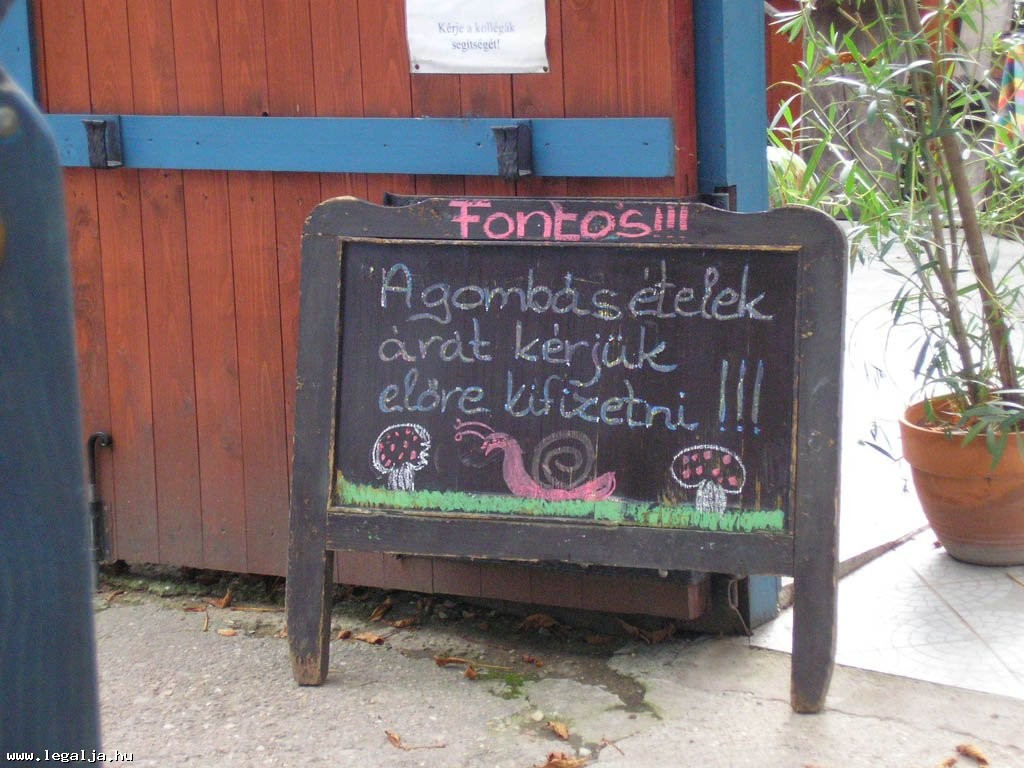 Kérje a kollégák
segítségét!
Fontos!!!
A gombás ételek
árát kérjük
előre kifizetni !!!
www.legalja.hu